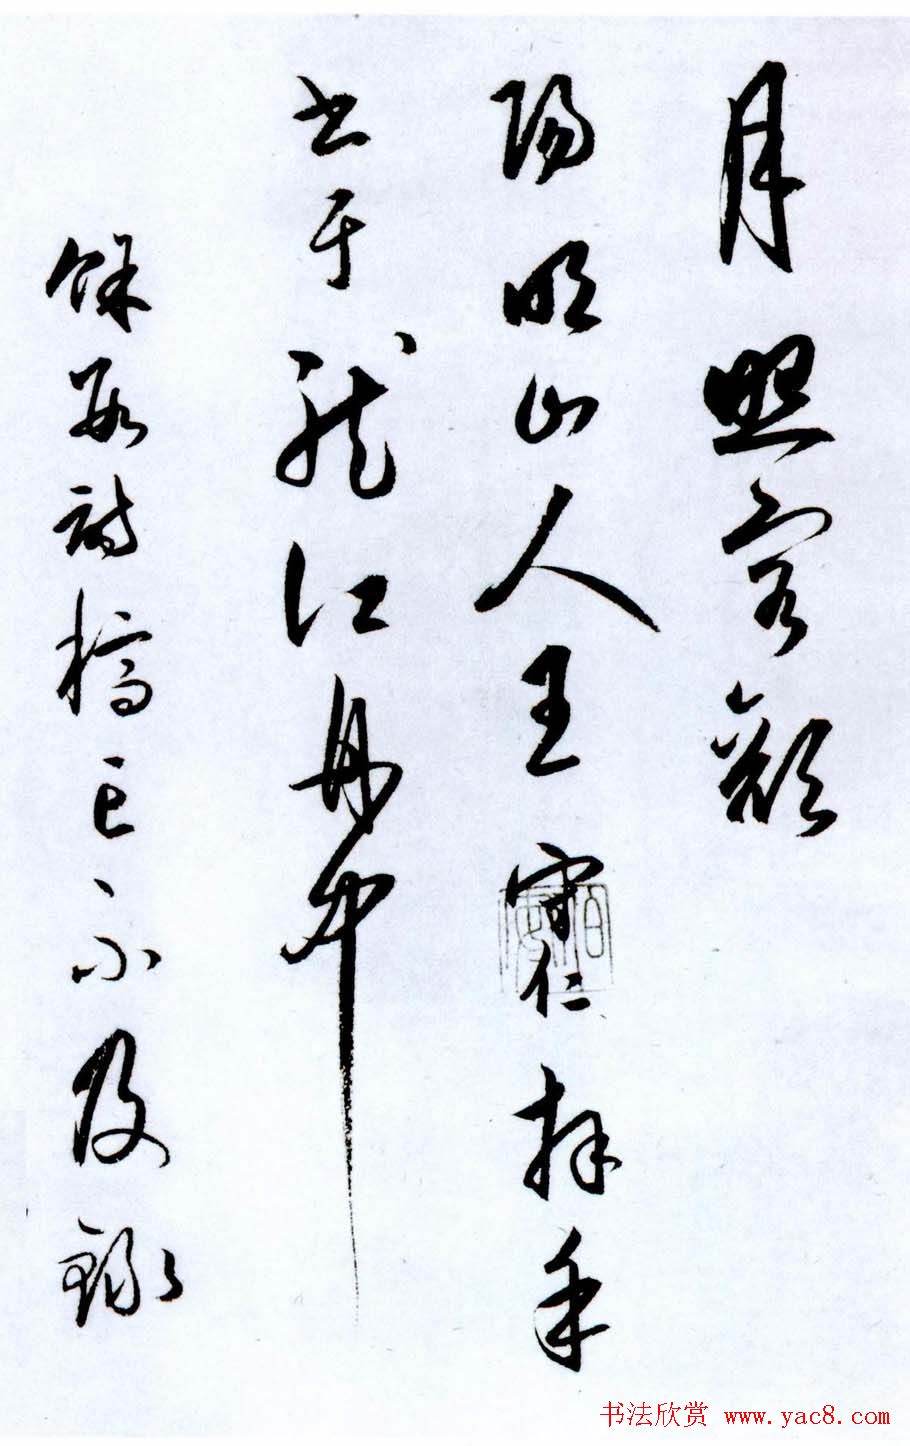 月照容顏
陽明山人王守仁拜手
書于龍江舟中
餘數詩稿亡不及錄
书法欣赏 www.yac8.com